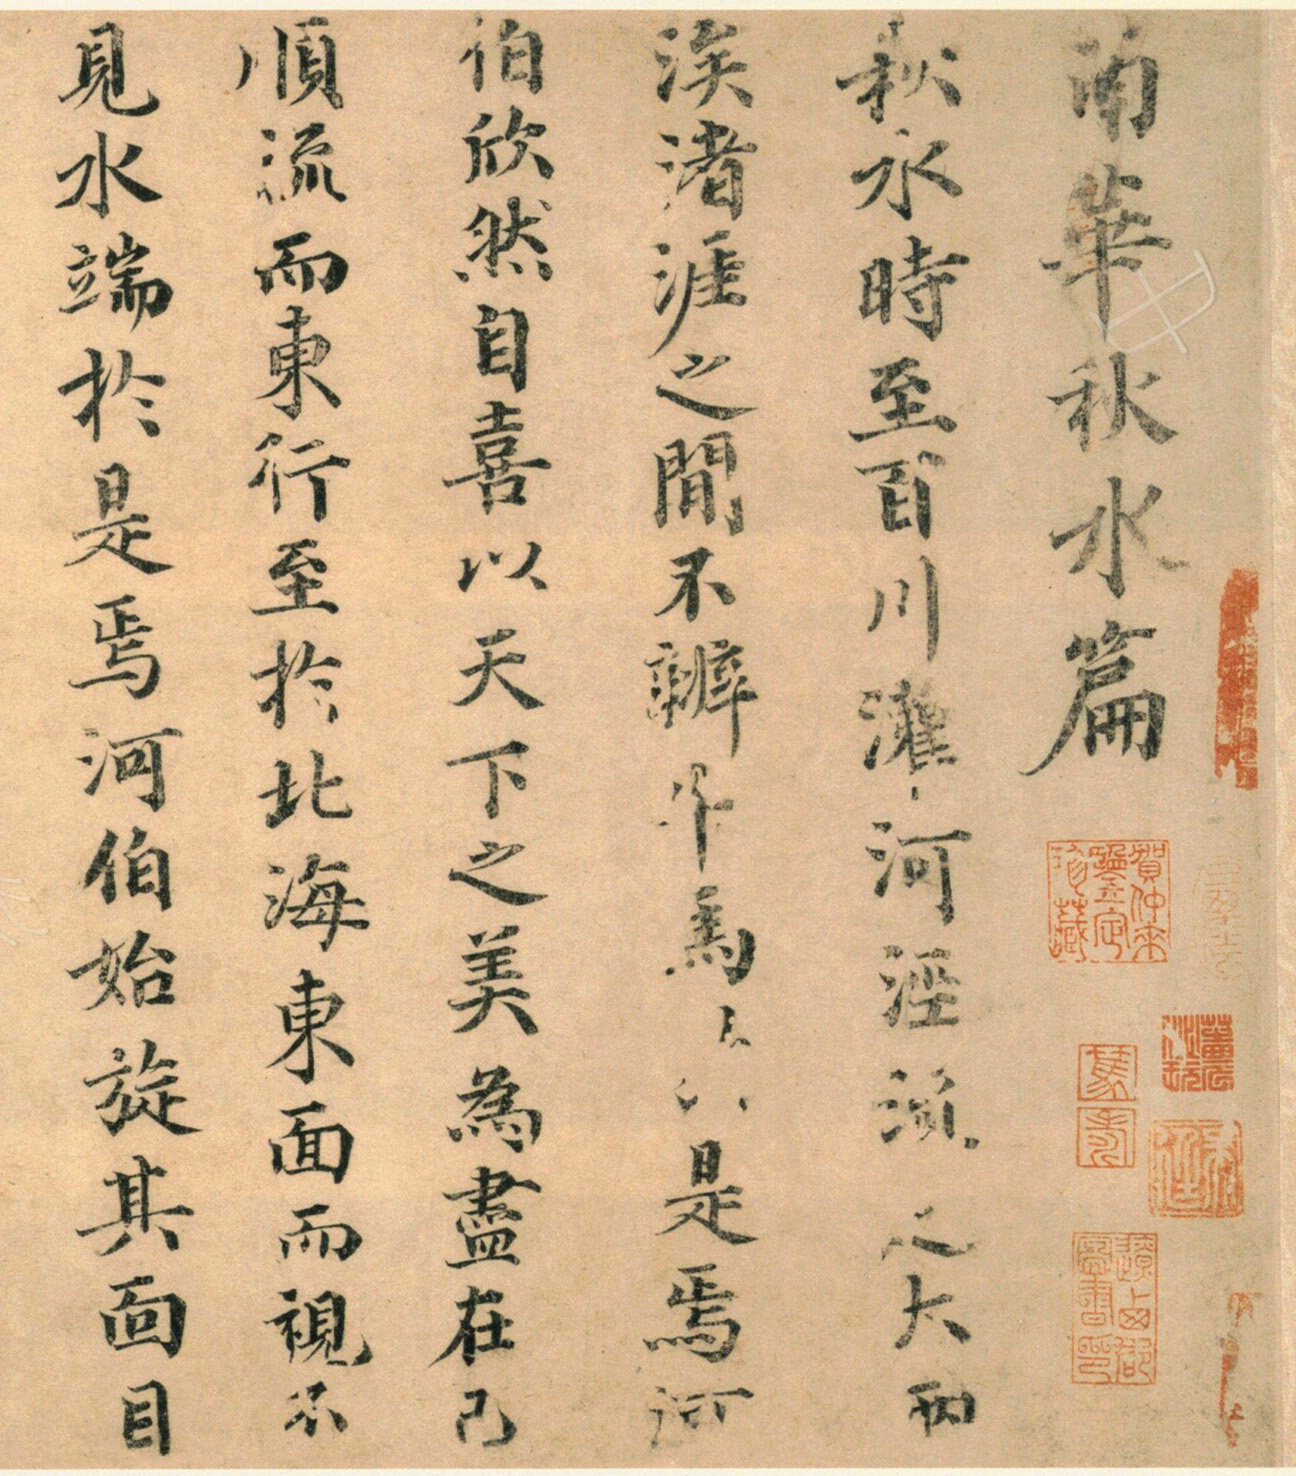 南華秋水篇
秋水時至百川灌河涇流之大兩
涘渚涯之間不辯牛馬於是焉河
伯欣然自喜以天下之美為盡在己
順流而東行至於北海東面而視不
見水端於是焉河伯始旋其面目
賀仲來鑒定珍藏